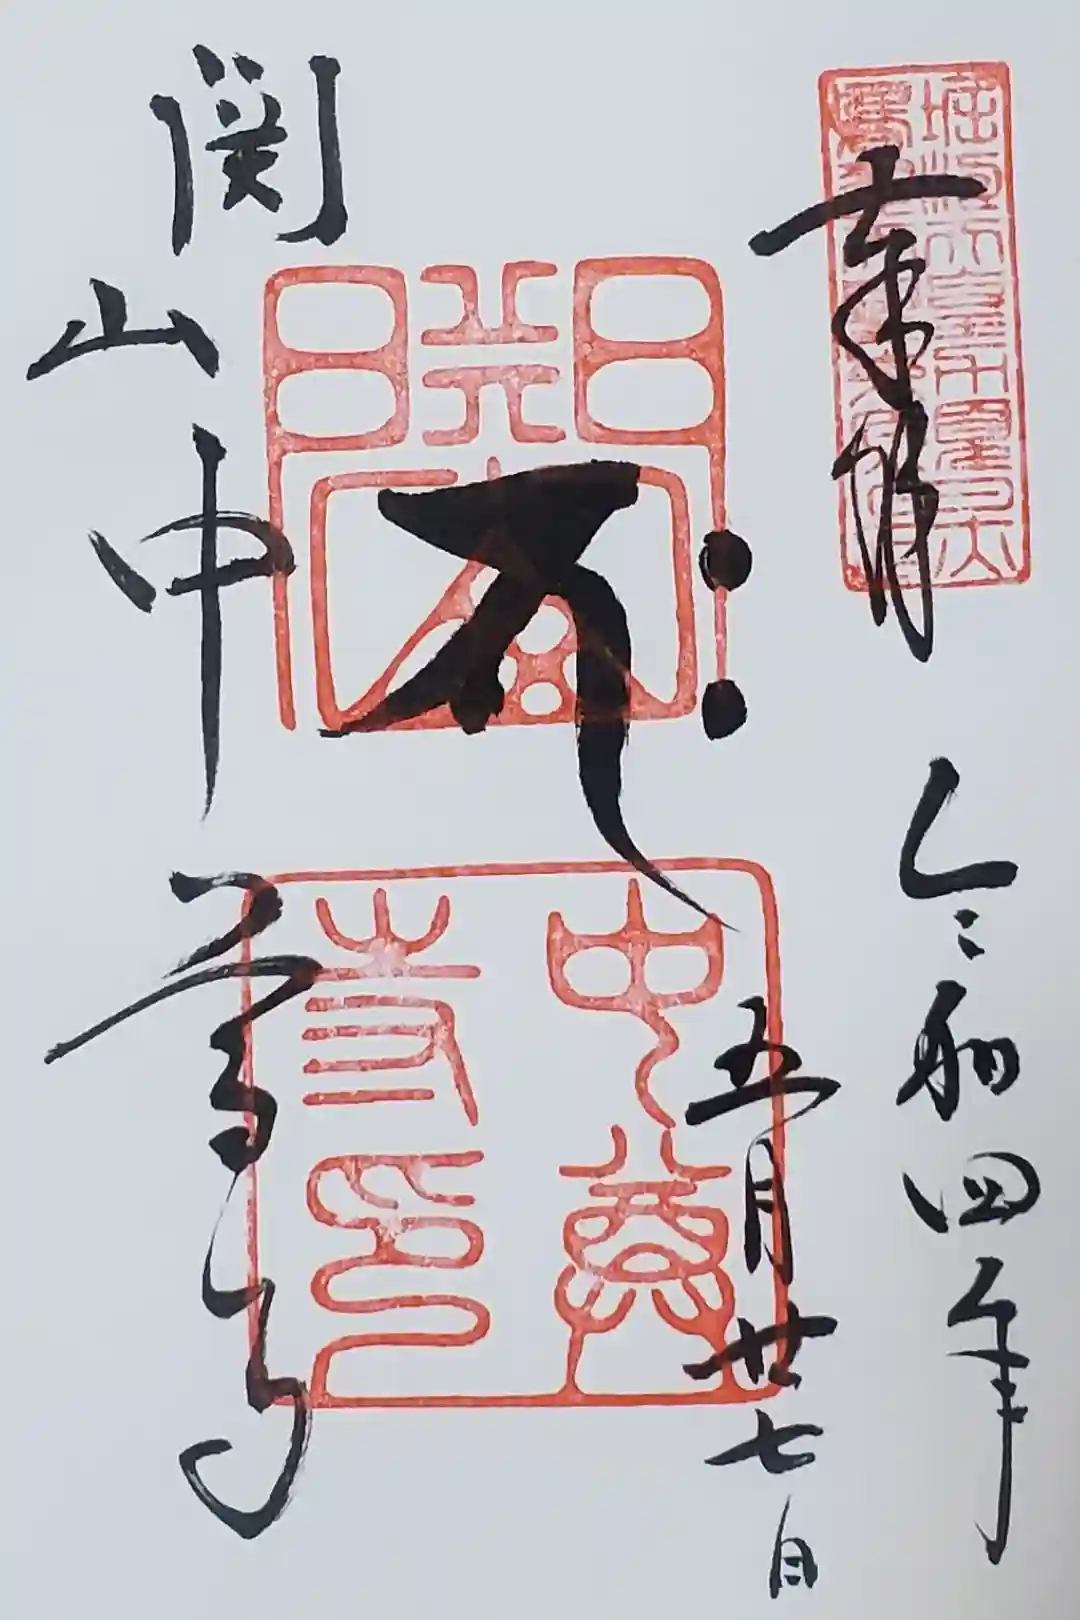 奉拝
令和四年
五月廿七日
関山中尊寺
關山
中尊
寺印